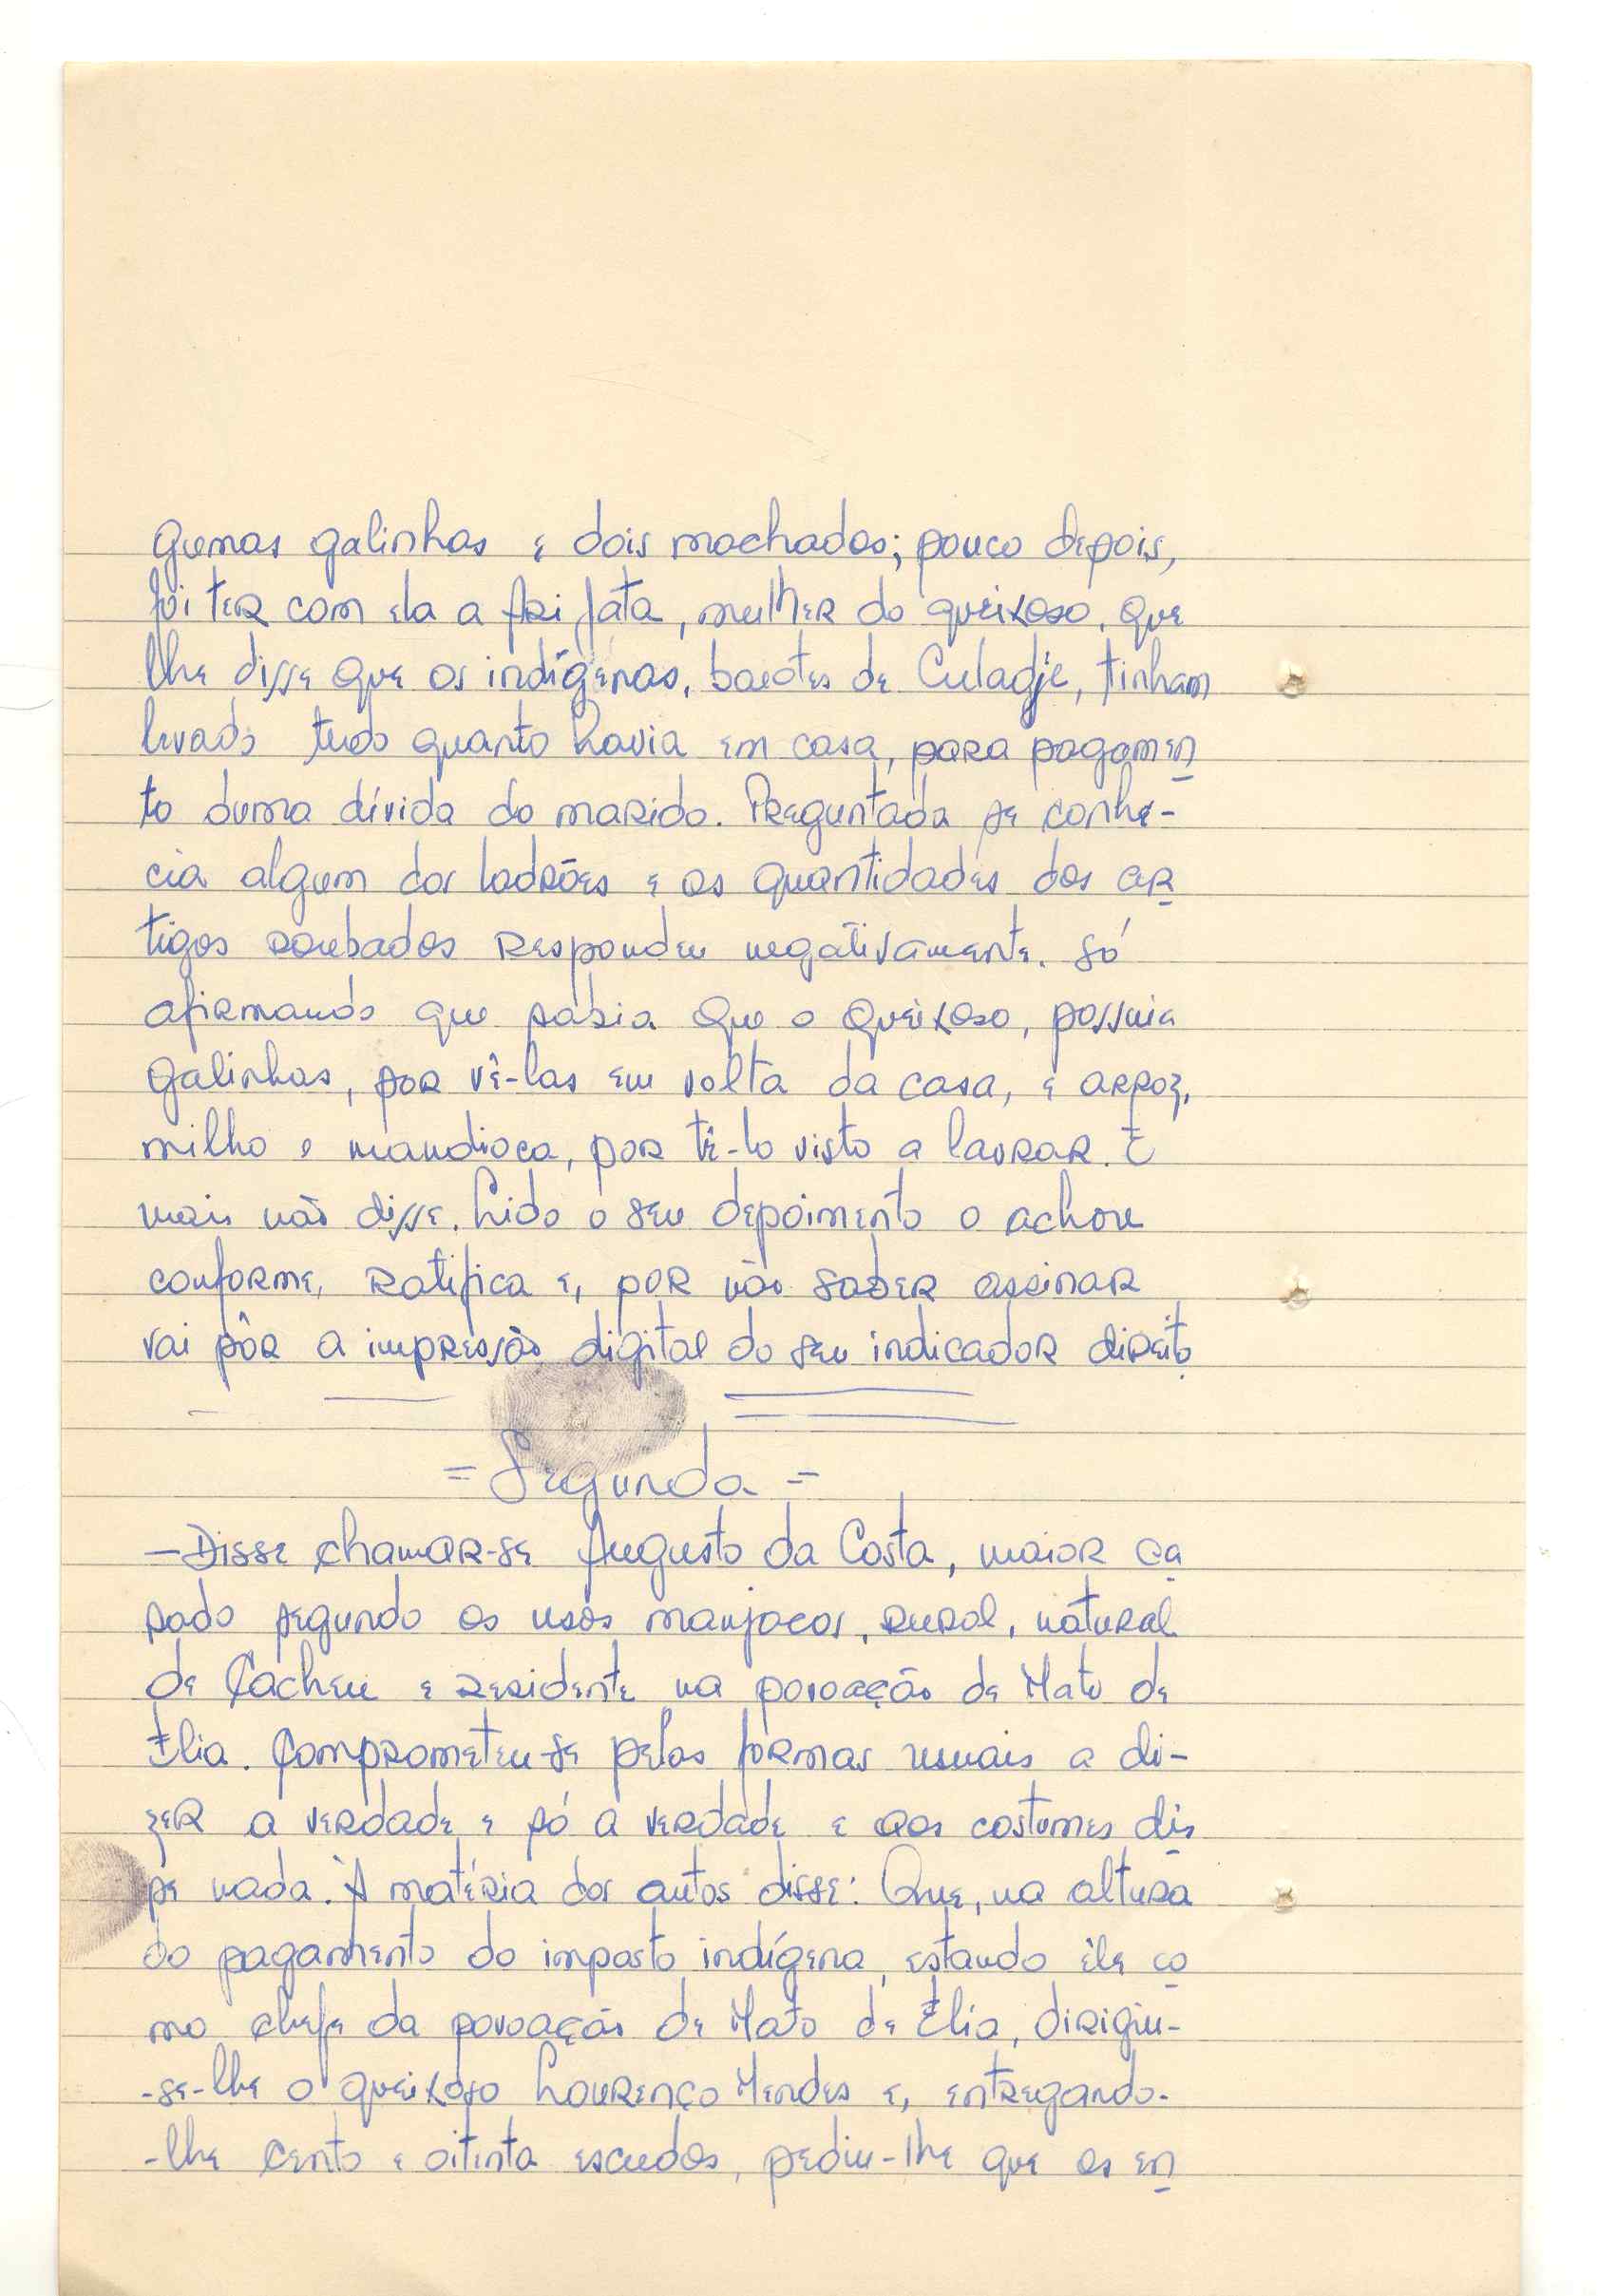 gumas galinhas e dois machados; pouco depois,
foi ter com ela a Fata, mulher do queixoso, que
lhe disse que os indígenas, baiotes de Culadje, tinham
levado tudo quanto havia em casa, para pagamen
to duma dívida do marido. Preguntada se conhe-
cia algum dos ladrões e as quantidades dos ar
tigos roubados respondeu negativamente. Só
afirmando que sabia que o queixoso, possuia
galinhas, por vê-las em volta da casa, e arroz,
milho e mandioca, por tê-lo visto a lavrar. E
mais não disse. Lido o seu depoimento o achou
conforme, ratifica e, por não saber assinar
vai pôr a impressão digital do seu indicador direito
= Segunda =
— Disse chamar-se Augusto da Costa, maior ca
sado segundo os usos manjacos, rural, natural
de Cacheu e residente na povoação de Mato de
Elia. Comprometeu-se pelas formas usuais a di-
zer a verdade e só a verdade e aos costumes dis
se nada. À matéria dos autos disse: Que, na altura
do pagamento do imposto indígena, estando êle co
mo chefe da povoação de Mato de Elia, dirigiu-
-se-lhe o queixoso Lourenço Mendes e, entregando-
-lhe cento e oitenta escudos, pediu-lhe que os en